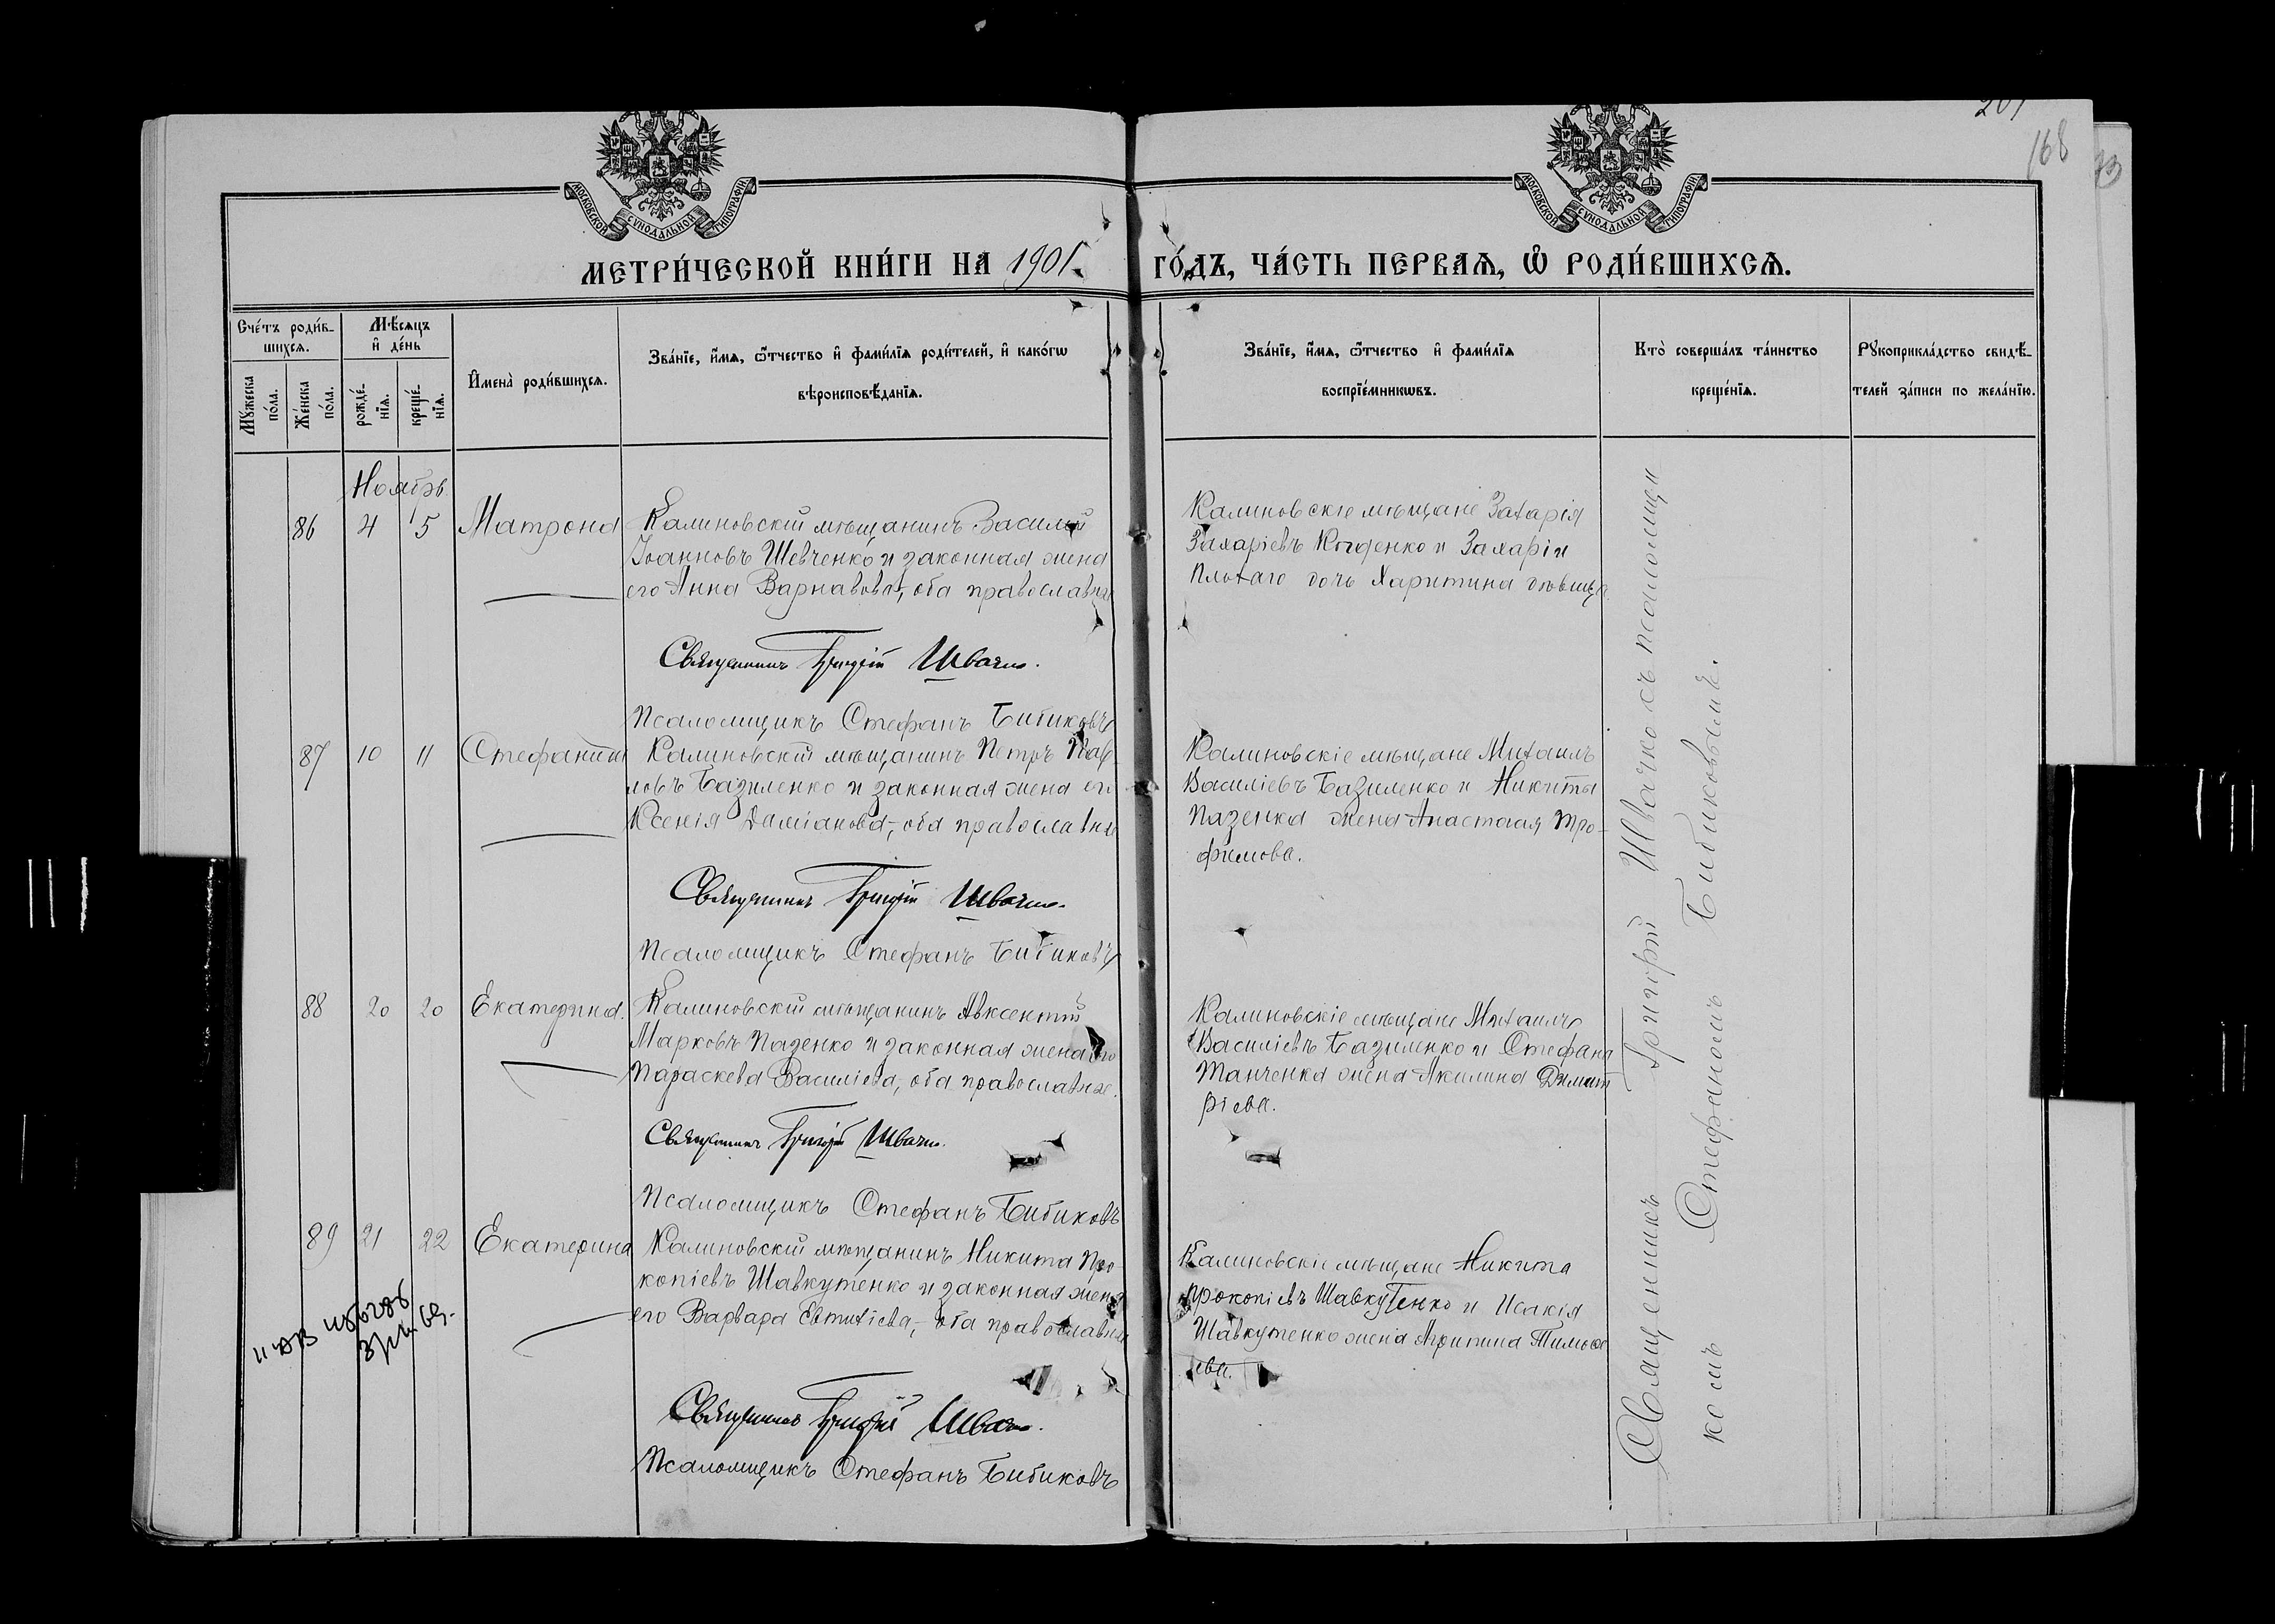 201
168
73
МОСКОВСКОЙ СѴНОДАЛЬНОЙ ТИПОГРАФІИ
МОСКОВСКОЙ СѴНОДАЛЬНОЙ ТИПОГРАФІИ
МЕТРИ́ЧЕСКОЙ КНИ́ГИ НА 1901. ГО́ДЪ, ЧА́СТЬ ПЕРВАѦ, Ѡ РОДИ́ВШИХСѦ.
Сче́тъ роди́в-
шихсѧ.
Мꙋ́жеска по́ла.
Же́нска по́ла.
Мѣ́сѧцъ и де́нь
рожде́-
нїѧ.
креще́-
нїѧ.
Имена̀ роди́вшихсѧ.
Зва́нїе, и́мѧ, ѻ́тчество и фами́лїѧ роди́телей, и како́гѡ
вѣроисповѣ́данїѧ.
Зва́нїе, и́мѧ, ѻ́тчество и фами́лїѧ
воспрїе́мникѡвъ.
Кто̀ соверша́лъ та́инство
креще́нїѧ.
Рꙋкоприкла́дство свидѣ́-
телей за́писи по жела́нїю.
Ноябрь.
86 4 5 Матрона
Калиновскій мѣщанинъ Василій
Іоанновъ Шевченко и законная жена
его Анна Варнавова, оба православные
Священникъ Григорій Швачко.
Псаломщикъ Стефанъ Бибиковъ
Калиновскіе мѣщане Захарія
Захаріевъ и Захаріи
дочь Харитина дѣвица.
87 10 11
Калиновскій мѣщанинъ Петръ Пав-
ловъ Базиленко и законная жена его
Ксенія Даміанова, оба православные
Священникъ Григорій Швачко.
Псаломщикъ Стефанъ Бибиковъ
Калиновскіе мѣщане Михаилъ
Василіевъ Базиленко и Никиты
Пазенка жена Анастасія Тро-
фимова.
88 20 20 Екатерина.
Калиновскій мѣщанинъ Авксентій
Марковъ Пазенко и законная жена его
Параскева Василіева, оба православные.
Священникъ Григорій Швачко.
Псаломщикъ Стефанъ Бибиковъ
Калиновскіе мѣщане Михаилъ
Василіевъ Базиленко и Стефана
Танченка жена Акилина Димит
ріева.
89 21 22 Екатерина
Калиновскій мѣщанинъ Никита Про-
копіевъ Шавкутенко и законная жена
его Варвара Евтихіева, оба православные
Священникъ Григорій Швачко.
Псаломщикъ Стефанъ Бибиковъ
Калиновскіе мѣщане Никита
Прокопіевъ Шавкутенко и Исакія
Шавкутенко жена Агрипина Тимоѳе
ева.
Священникъ Григорій Швачко съ псаломщи
комъ Стефаномъ Бибиковымъ.